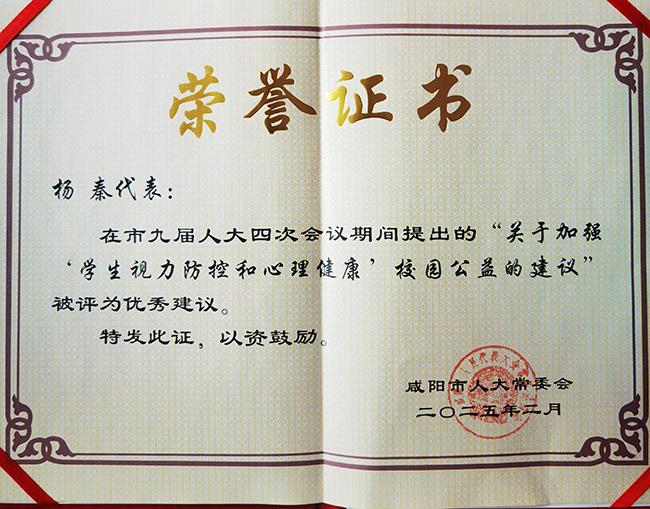 荣誉证书
杨 秦代表：
在市九届人大四次会议期间提出的“关于加强
‘学生视力防控和心理健康’校园公益的建议”
被评为优秀建议。
特发此证，以资鼓励。
咸阳市人大常委会
二〇二五年二月